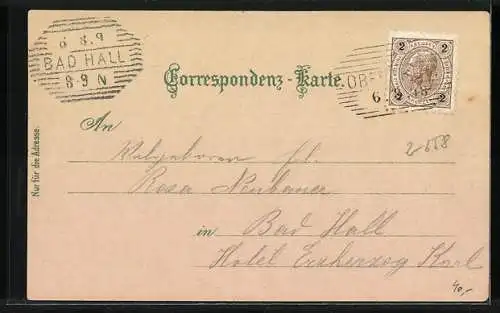 6 8.9
BAD HALL
8-9 N
2
2
2
2
OBER
6
Correspondenz-Karte.
Nur für die Adresse.
An
Fl.
Rosa Neubauer
in Bad Hall
Hotel Erzherzog Karl
40,-